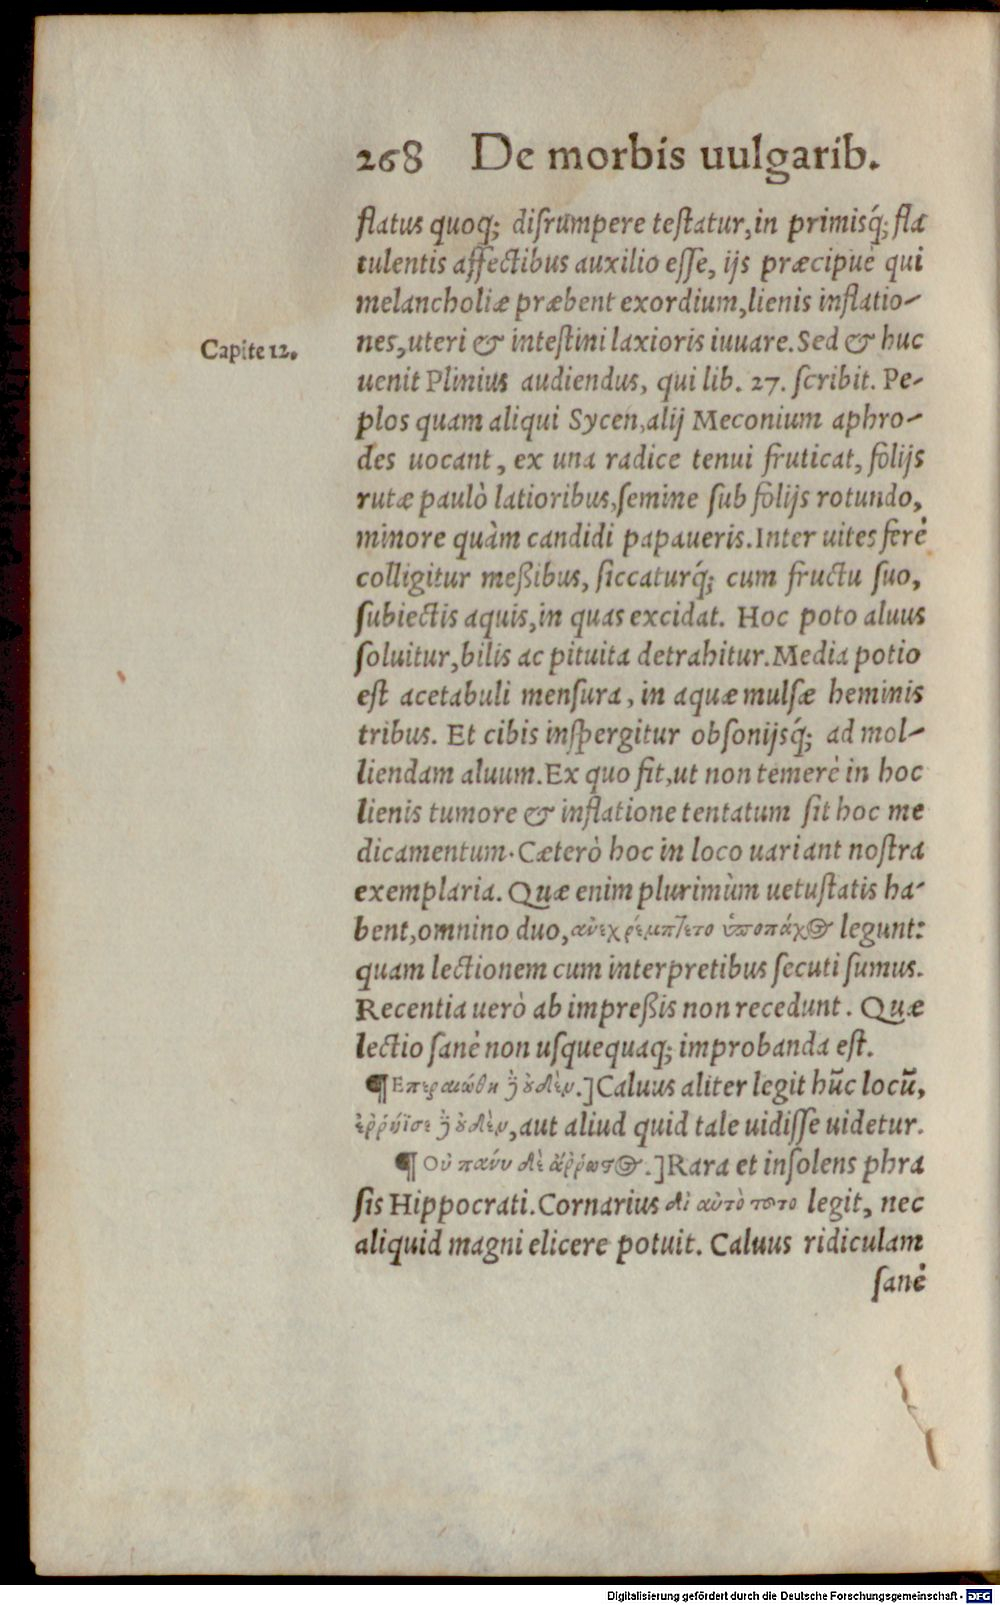 268 De morbis uulgarib.
flatus quoq; disrumpere testatur, in primisq́; fla
tulentis affectibus auxilio esse, ijs præcipuè qui
melancholiæ præbent exordium, lienis inflatio-
nes, uteri & intestini laxioris iuuare. Sed & huc
Capite 12.
uenit Plinius audiendus, qui lib. 27. scribit. Pe-
plos quam aliqui Sycen, alij Meconium aphro-
des uocant, ex una radice tenui fruticat, folijs
rutæ paulò latioribus, semine sub folijs rotundo,
minore quàm candidi papaueris. Inter uites ferè
colligitur meßibus, siccaturq́; cum fructu suo,
subiectis aquis, in quas excidat. Hoc poto aluus
soluitur, bilis ac pituita detrahitur. Media potio
est acetabuli mensura, in aquæ mulsæ heminis
tribus. Et cibis inspergitur obsonijsq́; ad mol-
liendam aluum. Ex quo fit, ut non temerè in hoc
lienis tumore & inflatione tentatum sit hoc me
dicamentum. Cæterò hoc in loco uariant nostra
exemplaria. Quæ enim plurimùm uetustatis ha-
bent, omnino duo, ἀνεχρέμπτετο ὑποπάχος legunt:
quam lectionem cum interpretibus secuti sumus.
Recentia uerò ab impreßis non recedunt. Quæ
lectio sanè non usquequaq; improbanda est.
¶ Επεραιώθη ὃ οὐδὲν.] Caluus aliter legit hūc locū,
ἐρρήϊσε ὃ οὐδὲν, aut aliud quid tale uidisse uidetur.
¶ Οὐ πανύ δὲ ἄρρωστος.] Rara et insolens phra
sis Hippocrati. Cornarius δι αὐτὸ τοῦτο legit, nec
aliquid magni elicere potuit. Caluus ridiculam
sanè
Digitalisierung gefördert durch die Deutsche Forschungsgemeinschaft - DFG